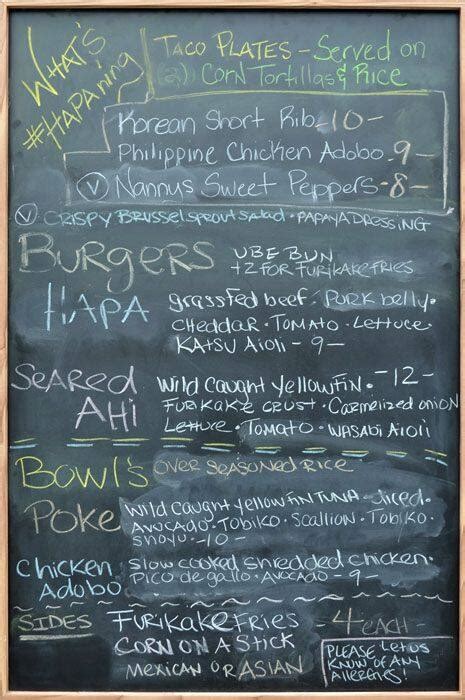 WHAT'S
#HAPAning
TACO PLATES - Served on
(2) CORN TORTILLAS & RICE
Korean Short Rib - 10 -
Philippine Chicken Adobo - 9 -
(V) Nannys Sweet Peppers - 8 -
(V) CRISPY BRUSSELSPROUT SALAD · PAPAYA DRESSING
BURGERS
UBE BUN
+2 FOR FURIKAKE FRIES
HAPA
grassfed beef · PORK belly ·
CHEDDAR · TOMATO · Lettuce
KATSU Aioli - 9 -
SEARED
AHI
Wild Caught Yellowfin · - 12 -
FURIKAKE CRUST · Carmelized onion
Lettuce · TOMATO · WASABI AIOLI
BOWL'S
OVER SEASONED RICE
POKE
Wild Caught Yellowfin TUNA - diced ·
AVOCADO · TOBIKO · Scallion · TOBIKO ·
SHOYU - 10 -
Chicken
ADOBO
Slow cooked shredded chicken ·
Pico de gallo · AVOCADO - 9 -
SIDES
FURIKAKE FRIES
CORN ON A STICK
MEXICAN OR ASIAN
- 4 EACH -
PLEASE Let us
KNOW OF ANY
Allergies!